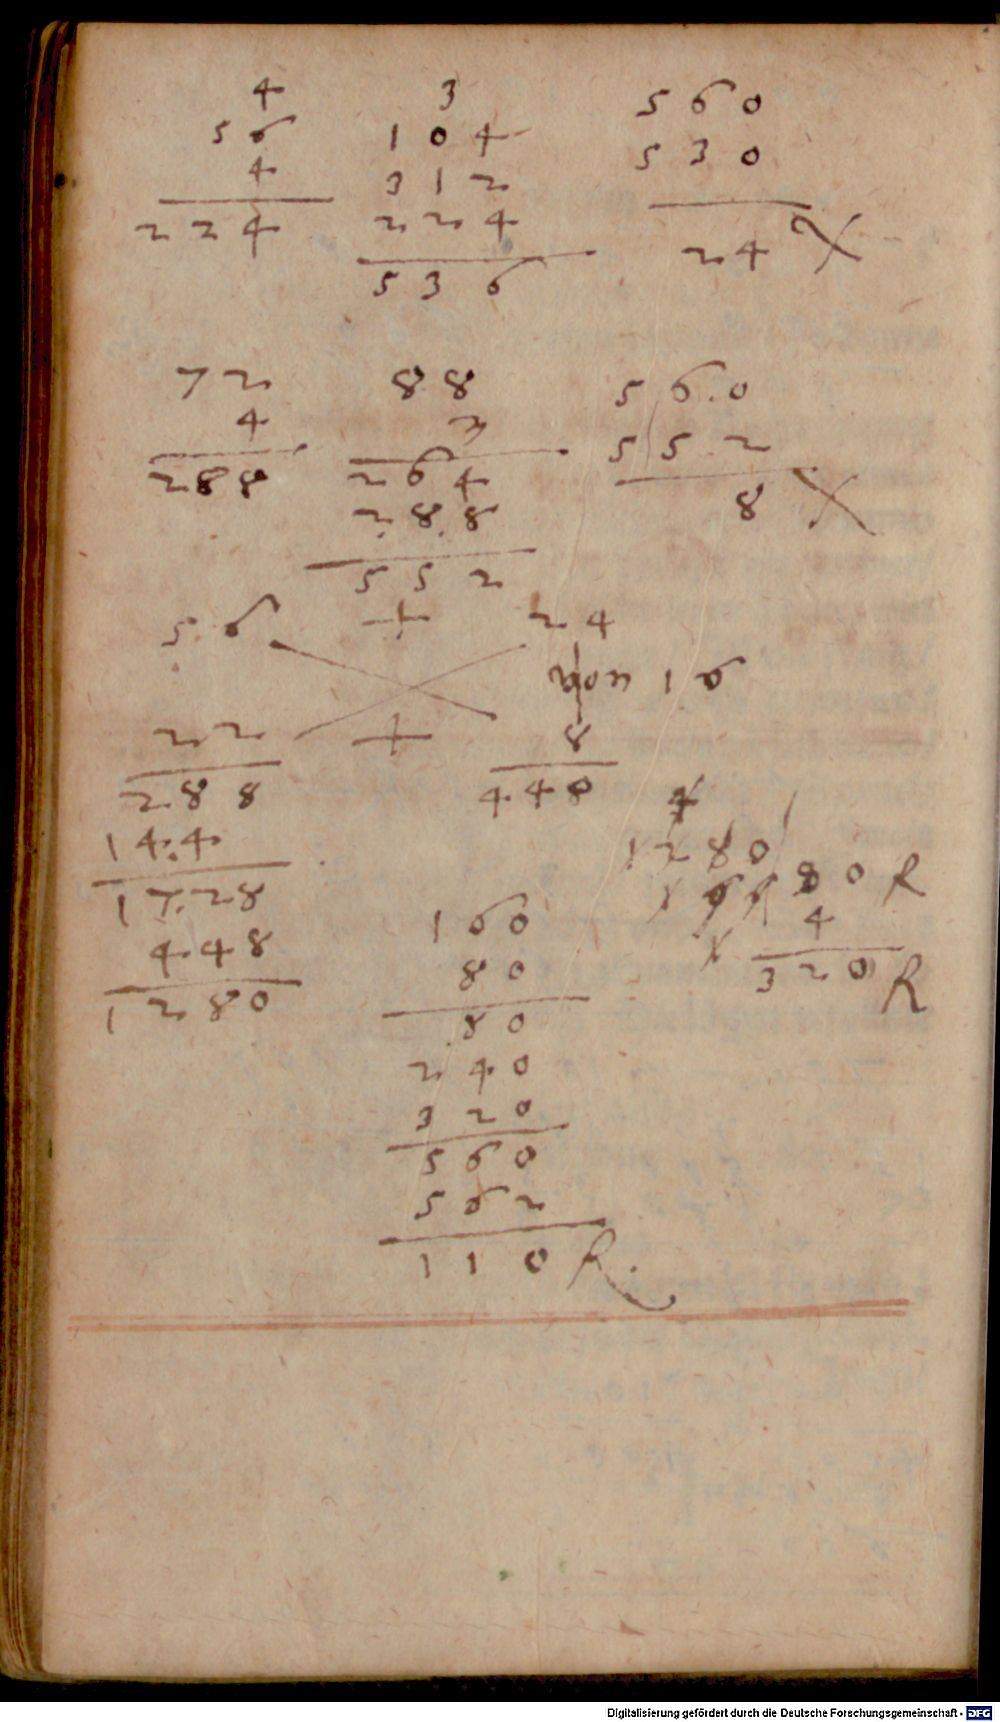 4
5 6
4
2 2 4
3
1 0 4
3 1 2
2 2 4
5 3 6
5 6 0
5 3 0
2 4
7 2
4
2 8 8
8 8
3
2 6 4
2 8 8
5 5 2
5 6 0
5 5 2
8
5 6 + 2 4
von 1 6
2 2 + 8
2 8 8
1 4 4
1 7 2 8
4 4 8
1 2 8 0
4 4 8
4
1 2 8 0
1 6 6 8 0 R
4
3 2 0 R
1 6 0
8 0
8 0
2 4 0
3 2 0
5 6 0
5 6 2
1 1 0 R.
Digitalisierung gefördert durch die Deutsche Forschungsgemeinschaft - DFG